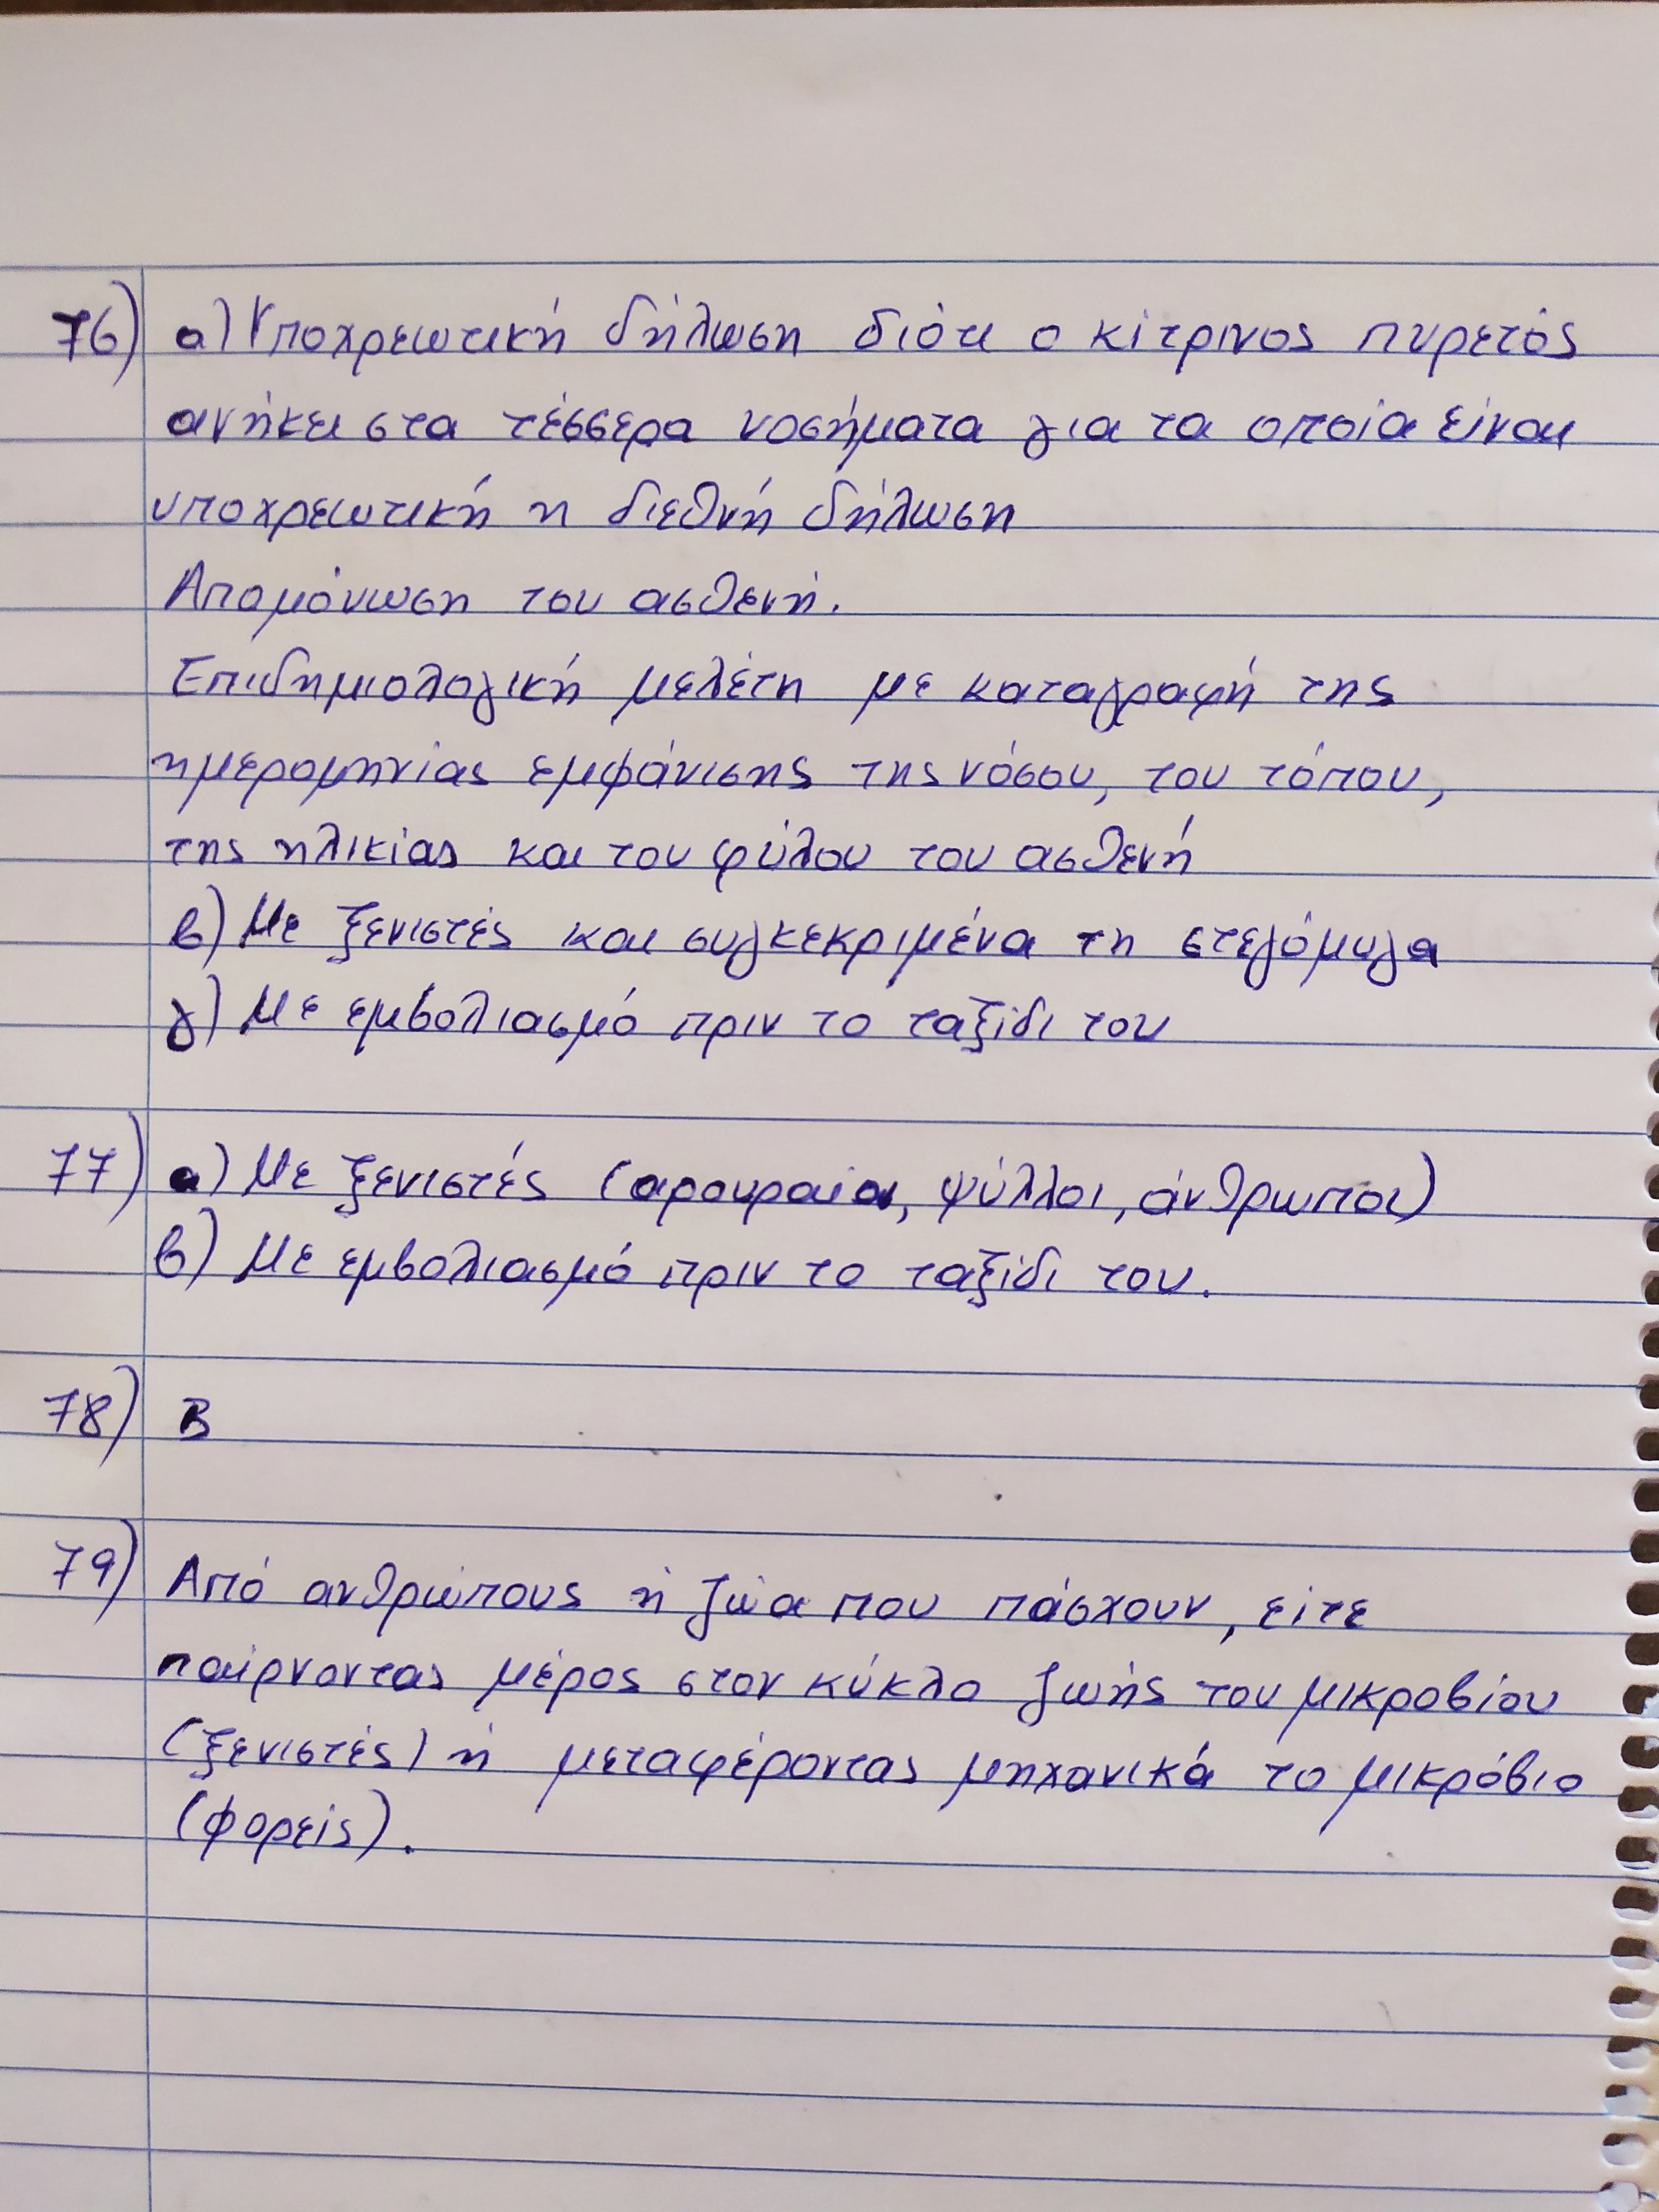 76) α) Υποχρεωτική δήλωση διότι ο κίτρινος πυρετός
ανήκει στα τέσσερα νοσήματα για τα οποία είναι
υποχρεωτική η διεθνή δήλωση
Απομόνωση του ασθενή.
Επιδημιολογική μελέτη με καταγραφή της
ημερομηνίας εμφάνισης της νόσου, του τόπου,
της ηλικίας και του φύλου του ασθενή
β) Με ξενιστές και συγκεκριμένα τη στεγόμυγα
γ) Με εμβολιασμό πριν το ταξίδι του
77) α) Με ξενιστές (αρουραία, ψύλλοι, άνθρωποι)
β) Με εμβολιασμό πριν το ταξίδι του.
78) Β
79) Από ανθρώπους ή ζώα που πάσχουν, είτε
παίρνοντας μέρος στον κύκλο ζωής του μικροβίου
(ξενιστές) ή μεταφέροντας μηχανικά το μικρόβιο
(φορείς).